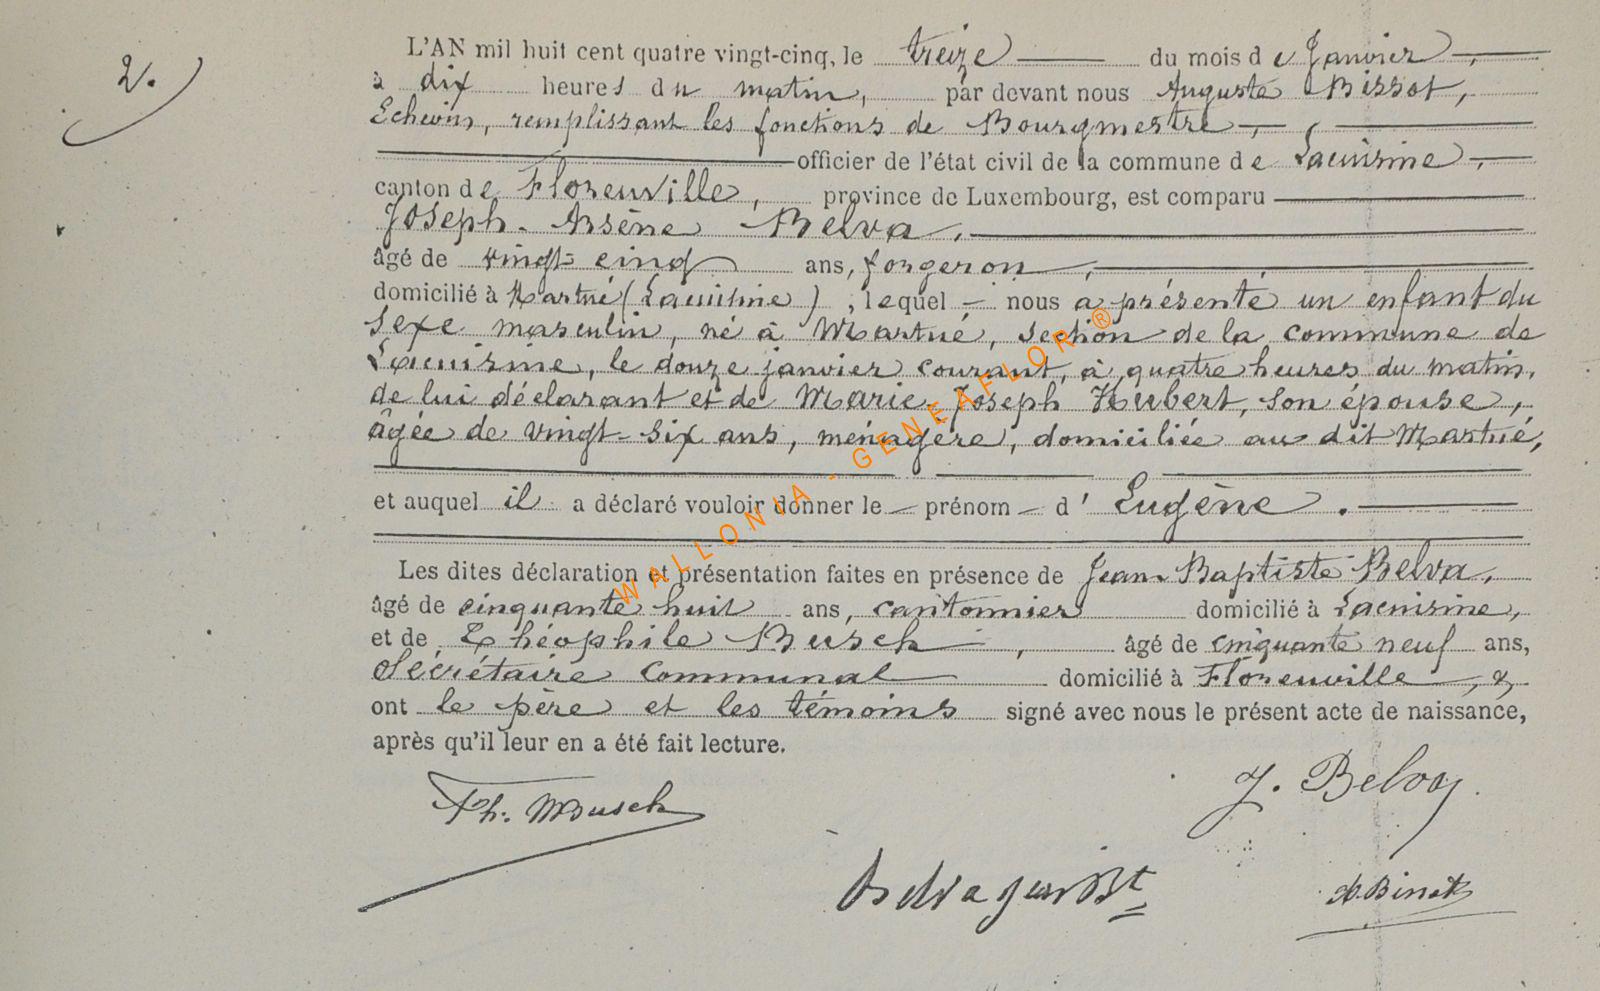 2.
L'AN mil huit cent quatre vingt-cinq, le treize du mois de Janvier,
à dix heures du matin, par devant nous Auguste Bissot,
Echevin, remplissant les fonctions de Bourgmestre,
officier de l'état civil de la commune de Lacuisine,
canton de Florenville, province de Luxembourg, est comparu
Joseph-Arsène Belva,
âgé de vingt-cinq ans, forgeron,
domicilié à Martué (Lacuisine), lequel nous a présenté un enfant du
sexe masculin, né à Martué, section de la commune de
Lacuisine, le douze janvier courant, à quatre heures du matin,
de lui déclarant et de Marie-Joseph Hubert, son épouse,
âgée de vingt-six ans, ménagère, domiciliée au dit Martué,
et auquel il a déclaré vouloir donner le prénom d'Eugène.
Les dites déclaration et présentation faites en présence de Jean-Baptiste Belva,
âgé de cinquante huit ans, cantonnier domicilié à Lacuisine,
et de Théophile Busch, âgé de cinquante neuf ans,
Sécrétaire communal domicilié à Florenville, &
ont le père et les témoins signé avec nous le présent acte de naissance,
après qu'il leur en a été fait lecture.
Th. Busch
J. Belva
Belva jean Bt
WALLONIA - GENEAFLOR ®